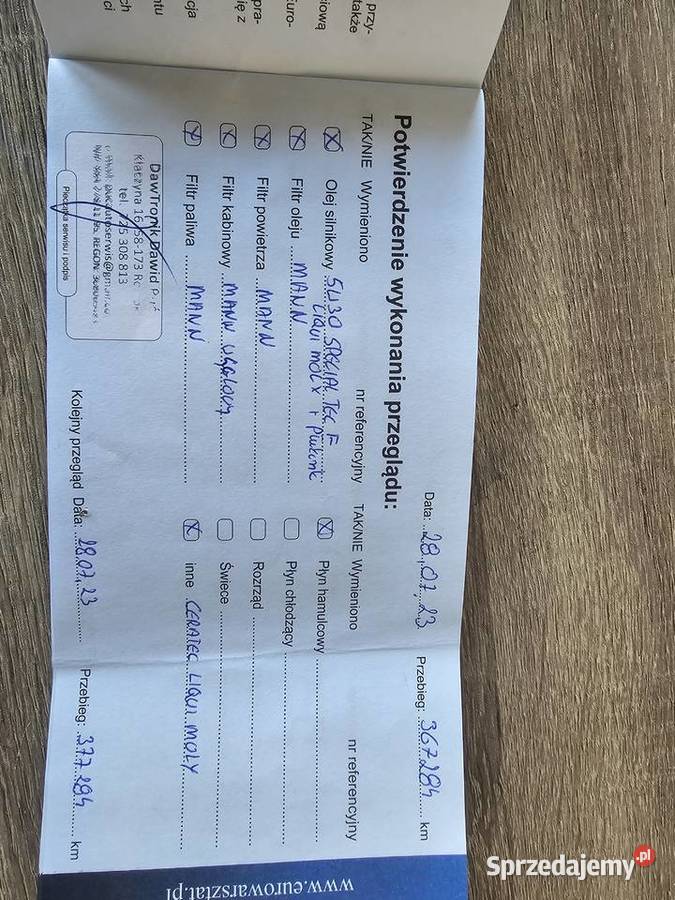 przy-
także
iową
Euro-
pra-
ię z
cja
ntu
ch
ci
Potwierdzenie wykonania przeglądu:
Data: 28.07.23 Przebieg: 367284 km
TAK/NIE Wymieniono nr referencyjny
Olej silnikowy 5W30 SPECIAL TEC F
LIQUI MOLY +
Filtr oleju MANN
Filtr powietrza MANN
Filtr kabinowy MANN WĘGLOWY
Filtr paliwa MANN
TAK/NIE Wymieniono nr referencyjny
Płyn hamulcowy
Płyn chłodzący
Rozrząd
Świece
inne CERATEC LIQUI MOLY
DawTronik Dawid
Kłaczyna 58-173
tel. 308 813
Pieczątka serwisu i podpis
Kolejny przegląd Data: 28.07.23 Przebieg: 377284 km
www.eurowarsztat.pl
Sprzedajemy.pl